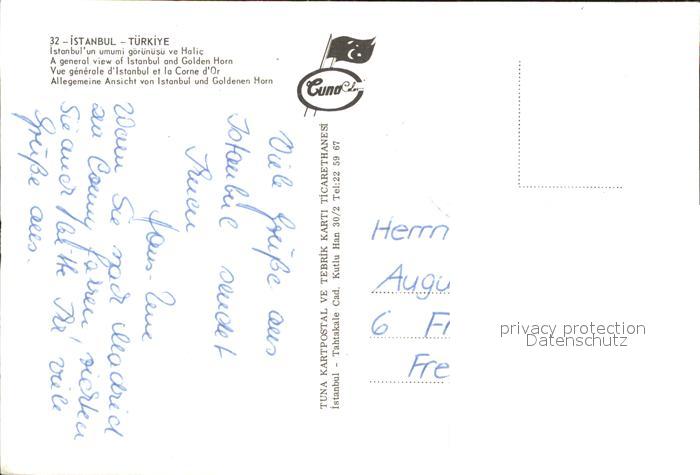 32 – İSTANBUL – TÜRKİYE
İstanbul'un umumi görünüsü ve Haliç
A general view of Istanbul and Golden Horn
Vue générale d'Istanbul et la Corne d'Or
Allegemeine Ansicht von Istanbul und Goldenen Horn
Tuna Color
TUNA KARTPOSTAL VE TEBRİK KARTI TİCARETHANESİ
İstanbul – Tahtakale Cad. Kutlu Han 30/2 Tel:22 59 67
Viele Grüße aus
Istanbul sendet
Ihnen
Hans-Uwe
Wenn Sie nach Madrid
zu Conny fahren, richten
Sie auch viele
Grüße aus.
Herrn
Augu
6 F
Fre
privacy protection
Datenschutz